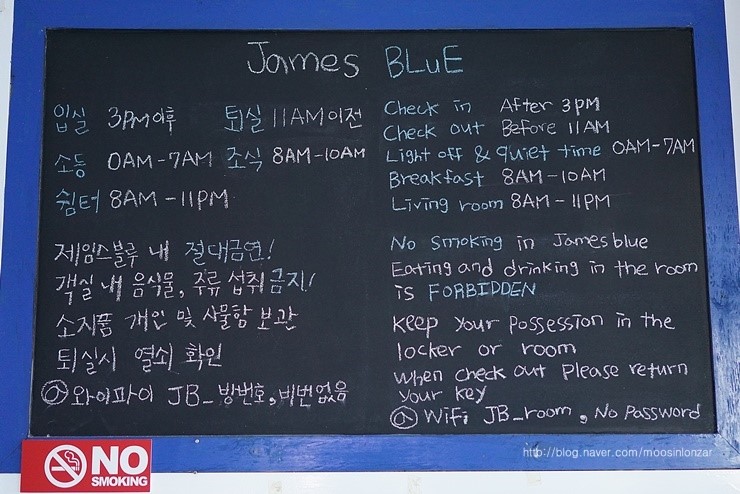 James BLuE
입실 3PM이후 퇴실 11AM이전
소등 0AM-7AM 조식 8AM-10AM
쉼터 8AM-11PM
제임스블루 내 절대금연!
객실 내 음식물, 주류 섭취금지!
소지품 개인 및 사물함 보관
퇴실시 열쇠 확인
와이파이 JB_방번호, 비번없음
Check in After 3PM
Check out Before 11AM
Light off & quiet time 0AM-7AM
Breakfast 8AM-10AM
Living room 8AM-11PM
No Smoking in Jamesblue
Eating and drinking in the room
is FORBIDDEN
Keep your possession in the
locker or room
when check out please return
your key
WiFi JB_room, No Password
NO
SMOKING
http://blog.naver.com/moosinlonzar